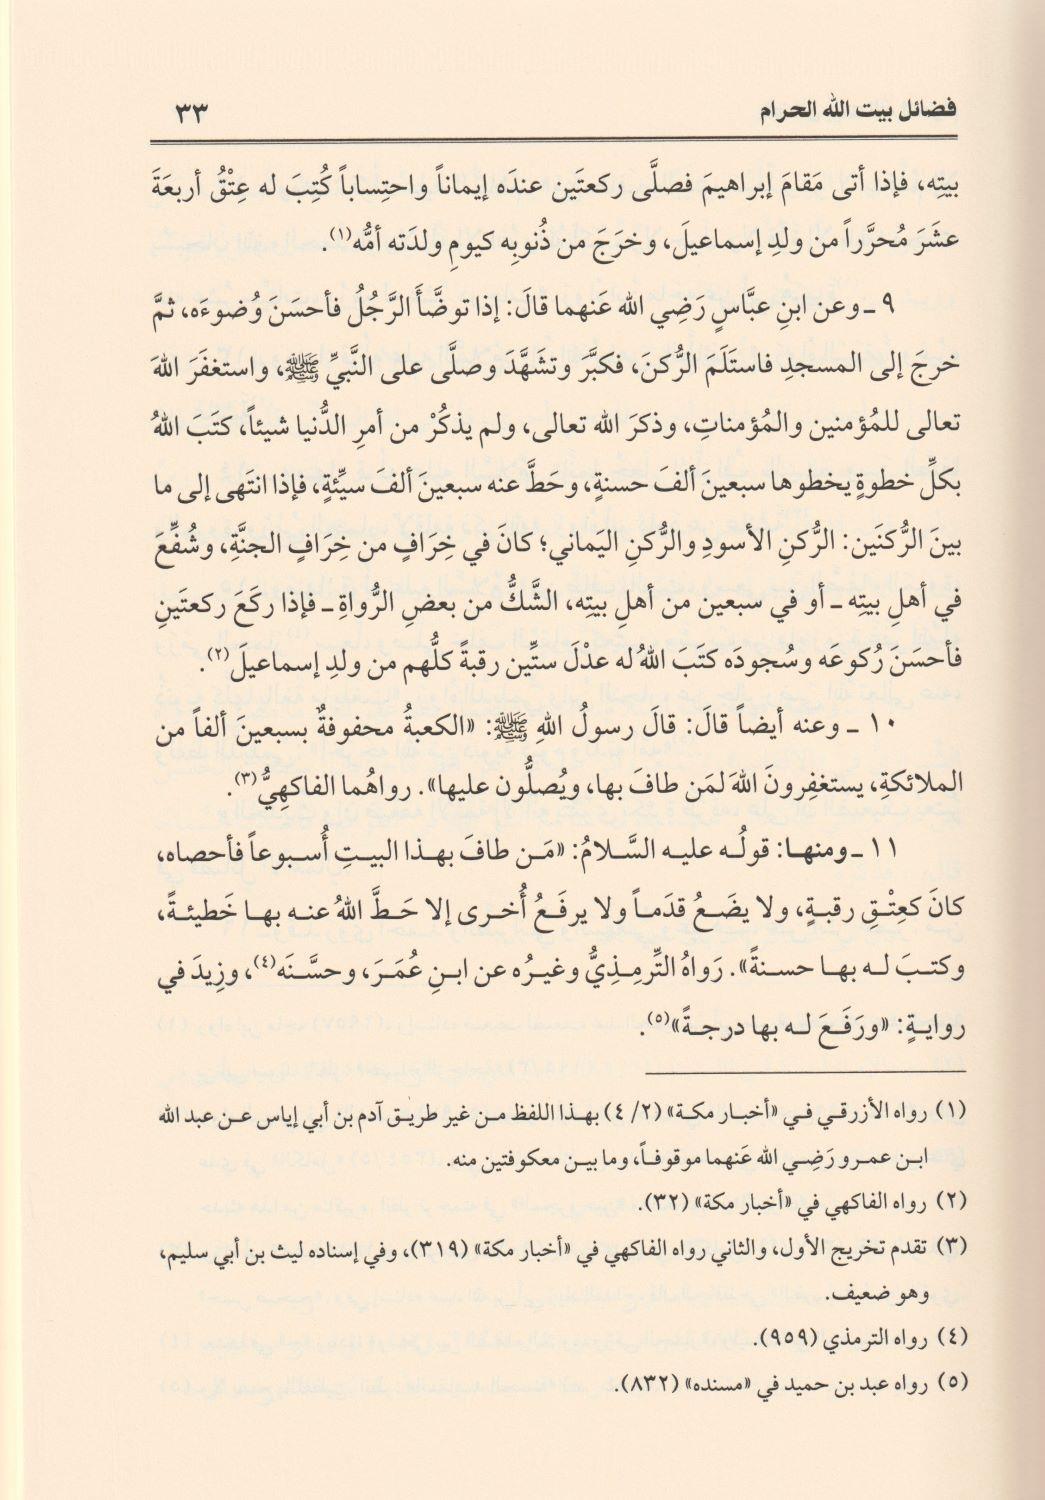 فضائل بيت الله الحرام ٣٣
بيتِه، فإذا أتى مَقامَ إبراهيمَ فصلَّى ركعتَين عندَه إيماناً واحتِساباً كُتِبَ له عِتْقُ أربعَةَ
عشَرَ مُحرَّراً من ولدِ إسماعيلَ، وخرَجَ من ذُنوبِه كيومِ ولدَته أمُّه(١).
٩ ـ وعن ابنِ عبَّاسٍ رَضِي الله عَنهما قالَ: إذا توضَّأَ الرَّجُلُ فأحسَنَ وُضوءَه، ثمَّ
خرجَ إلى المسجدِ فاستَلَمَ الرُّكنَ، فكبَّرَ وتشَهَّدَ وصلَّى على النَّبيِّ ﷺ، واستغفَرَ اللهَ
تعالى للمُؤمنين والمُؤمناتِ، وذكرَ الله تعالى، ولم يذكُرْ من أمرِ الدُّنيا شيئاً، كتَبَ اللهُ
بكلِّ خطوةٍ يخطوها سبعينَ ألفَ حسنةٍ، وحَطَّ عنه سبعينَ ألفَ سيِّئةٍ، فإذا انتَهى إلى ما
بينَ الرُّكنَين: الرُّكنِ الأسودِ والرُّكنِ اليَماني؛ كانَ في خِرَافٍ من خِرَافِ الجنَّةِ، وشُفِّعَ
في أهلِ بيتِه ـ أو في سبعين من أهلِ بيتِه، الشَّكُّ من بعضِ الرُّواةِ ـ فإذا ركَعَ ركعتَينِ
فأحسَنَ رُكوعَه وسُجودَه كتَبَ اللهُ له عدْلَ ستِّين رقبةً كلُّهم من ولدِ إسماعيلَ(٢).
١٠ ـ وعنه أيضاً قالَ: قالَ رسولُ اللهِ ﷺ: «الكعبةُ محفوفةٌ بسبعينَ ألفاً من
الملائكةِ، يستغفِرونَ اللهَ لمَن طافَ بها، ويُصلُّون عليها». رواهُما الفاكهِيُّ(٣).
١١ ـ ومنهـا: قولُـه عليـه السَّـلامُ: «مَـن طافَ بهـذا البيـتِ أُسـبوعـاً فأحصاه،
كانَ كعِتْـقِ رقبـةٍ، ولا يضَـعُ قدَمـاً ولا يرفَـعُ أُخـرى إلا حَـطَّ اللهُ عنـه بهـا خَطيئـةً،
وكتـبَ لـه بهـا حسـنةً». رَواهُ التِّرمِـذِيُّ وغيـرُه عن ابـنِ عُمَـرَ، وحسَّـنَه(٤)، وزِيدَ في
روايـةٍ: «ورَفَـعَ لـه بها درجـةً»(٥).
(١) رواه الأزرقـي فـي «أخبـار مكـة» (٢/ ٤) بهـذا اللفظ مـن غير طريـق آدم بن أبي إياس عـن عبد الله
ابـن عمـرو رَضِـي الله عَنهما موقوفـاً، وما بيـن معكوفتين منه.
(٢) رواه الفاكهي في «أخبار مكة» (٣٢).
(٣) تقدم تخريج الأول، والثاني رواه الفاكهي في «أخبار مكة» (٣١٩)، وفي إسناده ليث بن أبي سليم،
وهو ضعيف.
(٤) رواه الترمذي (٩٥٩).
(٥) رواه عبد بن حميد في «مسنده» (٨٣٢).